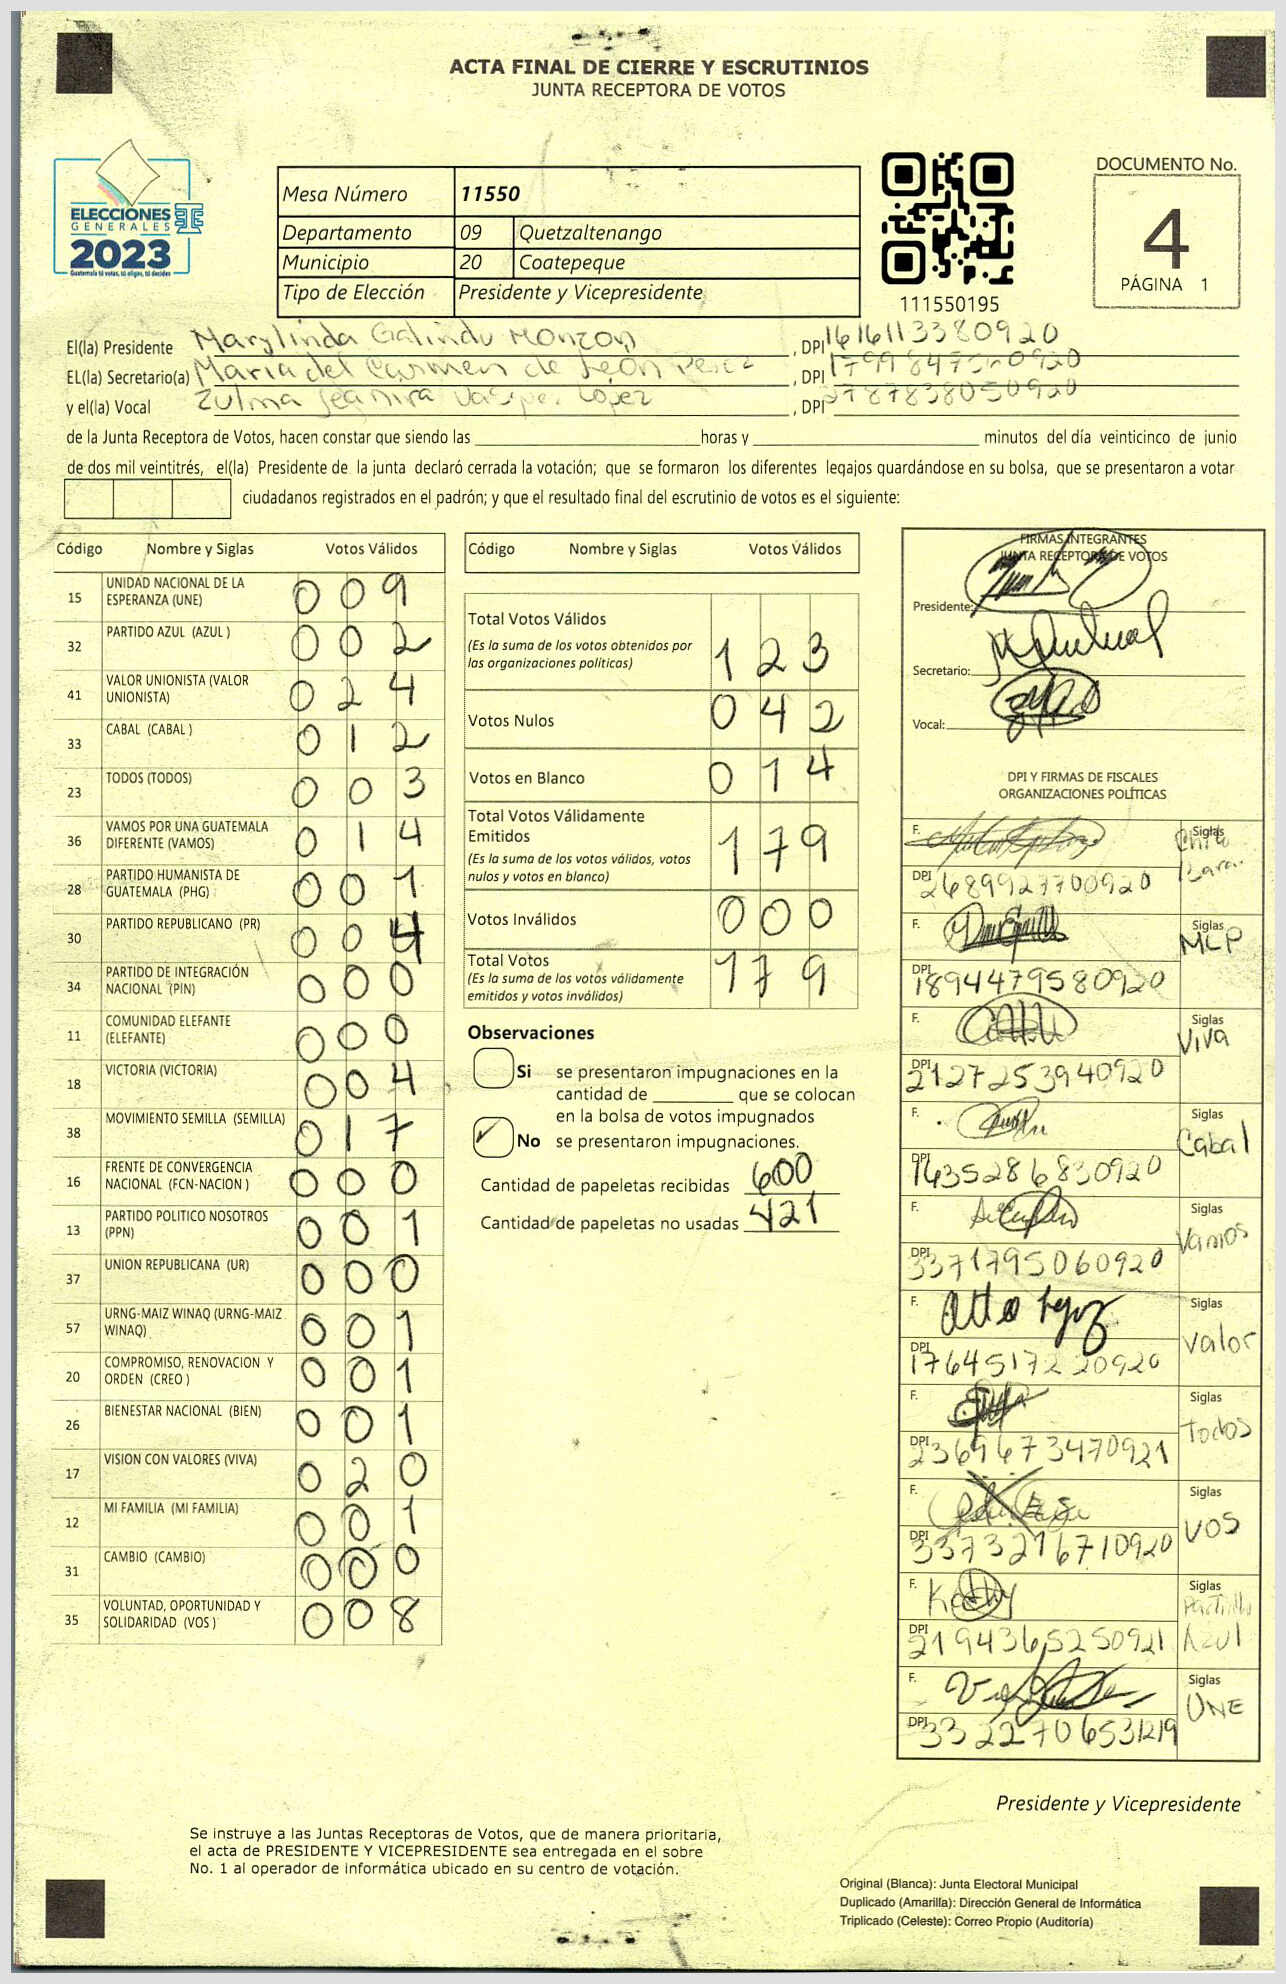 ACTA FINAL DE CIERRE Y ESCRUTINIOS
JUNTA RECEPTORA DE VOTOS
ELECCIONES
GENERALES
2023
Guatemala tú votas, tú eliges, tú decides
Mesa Número 11550
Departamento 09 Quetzaltenango
Municipio 20 Coatepeque
Tipo de Elección Presidente y Vicepresidente
111550195
DOCUMENTO No.
4
PÁGINA 1
El(la) Presidente Marylinda Galindo Monzon, DPI 1616113380920
EL(la) Secretario(a) Maria del Carmen de León Perez, DPI
y el(la) Vocal Zulma Vasquez López, DPI
de la Junta Receptora de Votos, hacen constar que siendo las horas y minutos del día veinticinco de junio
de dos mil veintitrés, el(la) Presidente de la junta declaró cerrada la votación; que se formaron los diferentes legajos guardándose en su bolsa, que se presentaron a votar
ciudadanos registrados en el padrón; y que el resultado final del escrutinio de votos es el siguiente:
Código Nombre y Siglas Votos Válidos
15 UNIDAD NACIONAL DE LA ESPERANZA (UNE) 009
32 PARTIDO AZUL (AZUL ) 002
41 VALOR UNIONISTA (VALOR UNIONISTA) 024
33 CABAL (CABAL ) 012
23 TODOS (TODOS) 003
36 VAMOS POR UNA GUATEMALA DIFERENTE (VAMOS) 014
28 PARTIDO HUMANISTA DE GUATEMALA (PHG) 001
30 PARTIDO REPUBLICANO (PR) 004
34 PARTIDO DE INTEGRACIÓN NACIONAL (PIN) 000
11 COMUNIDAD ELEFANTE (ELEFANTE) 000
18 VICTORIA (VICTORIA) 004
38 MOVIMIENTO SEMILLA (SEMILLA) 017
16 FRENTE DE CONVERGENCIA NACIONAL (FCN-NACION ) 000
13 PARTIDO POLITICO NOSOTROS (PPN) 001
37 UNION REPUBLICANA (UR) 000
57 URNG-MAIZ WINAQ (URNG-MAIZ WINAQ) 001
20 COMPROMISO, RENOVACION Y ORDEN (CREO ) 001
26 BIENESTAR NACIONAL (BIEN) 001
17 VISION CON VALORES (VIVA) 020
12 MI FAMILIA (MI FAMILIA) 001
31 CAMBIO (CAMBIO) 000
35 VOLUNTAD, OPORTUNIDAD Y SOLIDARIDAD (VOS ) 008
Código Nombre y Siglas Votos Válidos
Total Votos Válidos 123
(Es la suma de los votos obtenidos por
las organizaciones políticas)
Votos Nulos 042
Votos en Blanco 014
Total Votos Válidamente
Emitidos 179
(Es la suma de los votos válidos, votos
nulos y votos en blanco)
Votos Inválidos 000
Total Votos 179
(Es la suma de los votos válidamente
emitidos y votos inválidos)
Observaciones
Si se presentaron impugnaciones en la
cantidad de que se colocan
en la bolsa de votos impugnados
✓ No se presentaron impugnaciones.
Cantidad de papeletas recibidas 600
Cantidad de papeletas no usadas 421
FIRMAS INTEGRANTES
JUNTA RECEPTORA DE VOTOS
Presidente:
Secretario:
Vocal:
DPI Y FIRMAS DE FISCALES
ORGANIZACIONES POLÍTICAS
F. Siglas
DPI 2689927700920
F. Siglas MLP
DPI 1894479580920
F. Siglas Viva
DPI 2127253940920
F. Siglas Cabal
DPI 1635286830920
F. Siglas Vamos
DPI 3371795060920
F. Siglas Valor
DPI 1764517220920
F. Siglas Todos
DPI 2369673470921
F. Siglas VOS
DPI 3373216710920
F. Kathy Siglas Partido Azul
DPI 2194365250921
F. Siglas UNE
DPI 3322706531219
Presidente y Vicepresidente
Se instruye a las Juntas Receptoras de Votos, que de manera prioritaria,
el acta de PRESIDENTE Y VICEPRESIDENTE sea entregada en el sobre
No. 1 al operador de informática ubicado en su centro de votación.
Original (Blanca): Junta Electoral Municipal
Duplicado (Amarilla): Dirección General de Informática
Triplicado (Celeste): Correo Propio (Auditoría)